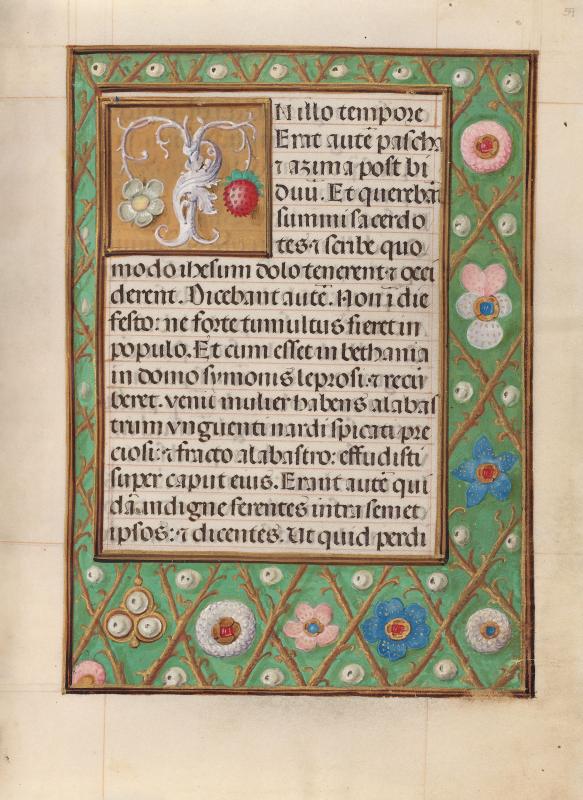 IN illo tempore
Erat autē pascha
⁊ azima post bi
duū. Et querebāt
summi sacerdo
tes ⁊ scribe quo
modo ihesum dolo tenerent ⁊ occi
derent. Dicebant autē. Non ī die
festo: ne forte tumultus fieret in
populo. Et cum esset in bethania
in domo symonis leprosi: ⁊ recū
beret. venit mulier habens alabas
trum vnguenti nardi spicati pre
ciosi: ⁊ fracto alabastro: effudisti
super caput eius. Erant autē qui
dā. indigne ferentes intra semet
ipsos: ⁊ dicentes. Ut quid perdi